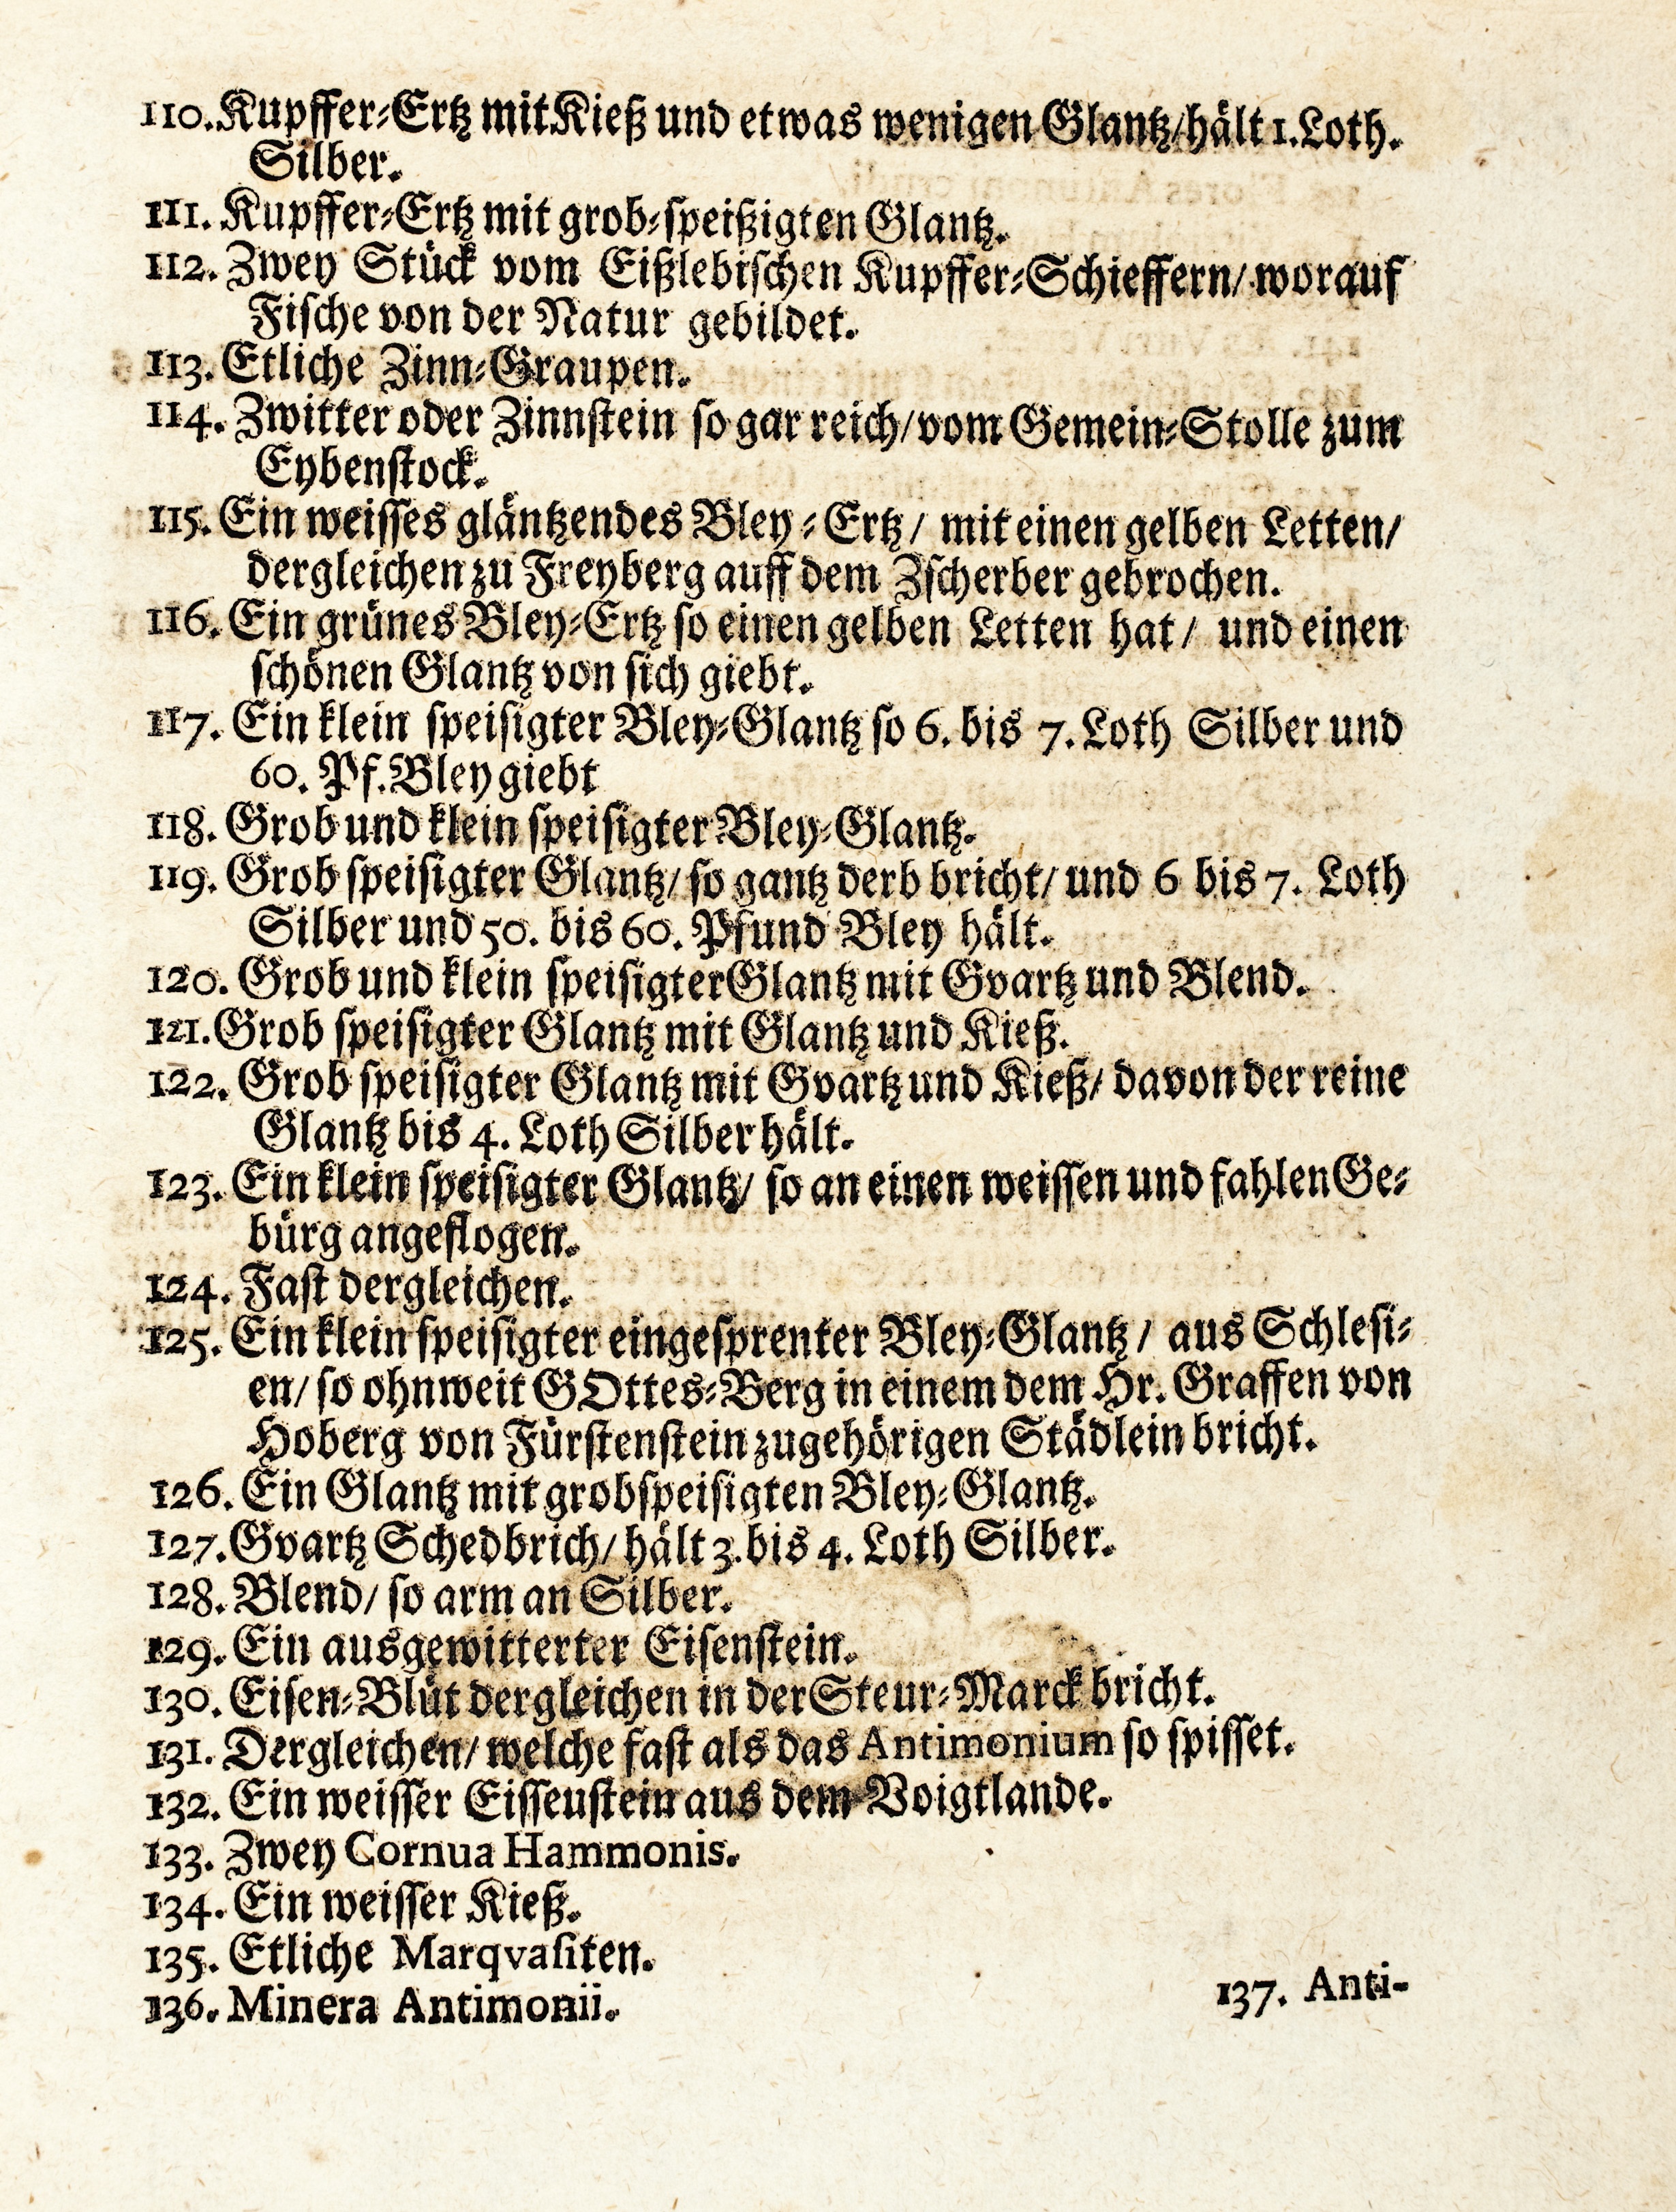 110. Kupffer-Ertz mit Kieß und etwas wenigen Glantz/ hält 1. Loth.
Silber.
111. Kupffer-Ertz mit grob-speißigten Glantz.
112. Zwey Stück vom Eißlebischen Kupffer-Schieffern/ worauf
Fische von der Natur gebildet.
113. Etliche Zinn-Graupen.
114. Zwitter oder Zinnstein so gar reich/ vom Gemein-Stolle zum
Eybenstock.
115. Ein weisses gläntzendes Bley-Ertz/ mit einen gelben Letten/
dergleichen zu Freyberg auff dem Zscherber gebrochen.
116. Ein grünes Bley-Ertz so einen gelben Letten hat/ und einen
schönen Glantz von sich giebt.
117. Ein klein speisigter Bley-Glantz so 6. bis 7. Loth Silber und
60. Pf. Bley giebt
118. Grob und klein speisigter Bley-Glantz.
119. Grob speisigter Glantz/ so gantz derb bricht/ und 6 bis 7. Loth
Silber und 50. bis 60. Pfund Bley hält.
120. Grob und klein speisigter Glantz mit Gvartz und Blend.
121. Grob speisigter Glantz mit Glantz und Kieß.
122. Grob speisigter Glantz mit Gvartz und Kieß/ davon der reine
Glantz bis 4. Loth Silber hält.
123. Ein klein speisigter Glantz/ so an einen weissen und fahlen Ge-
bürg angeflogen.
124. Fast dergleichen.
125. Ein klein speisigter eingesprenter Bley-Glantz/ aus Schlesi-
en/ so ohnweit GOttes-Berg in einem dem Hr. Graffen von
Hoberg von Fürstenstein zugehörigen Städlein bricht.
126. Ein Glantz mit grobspeisigten Bley-Glantz.
127. Gvartz Schedbrich/ hält 3. bis 4. Loth Silber.
128. Blend/ so arm an Silber.
129. Ein ausgewitterter Eisenstein.
130. Eisen-Blüt dergleichen in der Steur-Marck bricht.
131. Dergleichen/ welche fast als das Antimonium so spisset.
132. Ein weisser Eissenstein aus dem Voigtlande.
133. Zwey Cornua Hammonis.
134. Ein weisser Kieß.
135. Etliche Marqvasiten.
136. Minera Antimonii.
137. Anti-